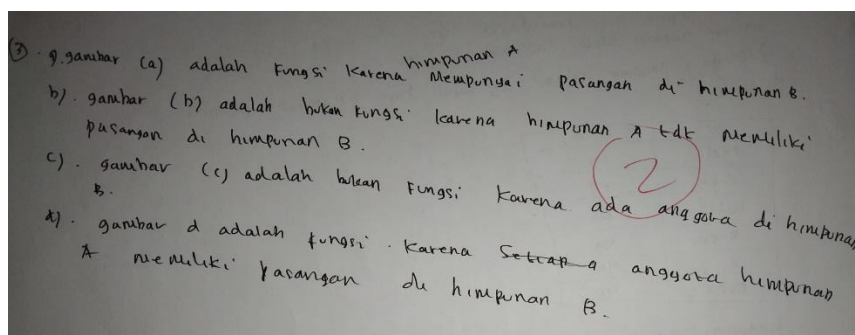 ③. a. gambar (a) adalah Fungsi karena himpunan A Mempunyai pasangan di himpunan B.
b). gambar (b) adalah bukan Fungsi karena himpunan A tdt memiliki
pasangan di himpunan B.
c). gambar (c) adalah bukan Fungsi karena ada anggota di himpunan
B.
d). gambar d adalah fungsi. karena Setiap a anggota himpunan
A memiliki pasangan di himpunan B.
2